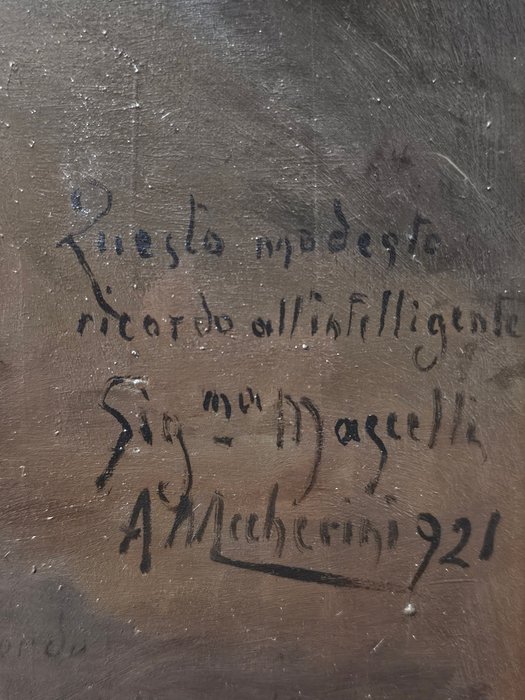 Questo modesto
ricordo all'intelligente
Sig.na Mascelli
A Meccherini 921